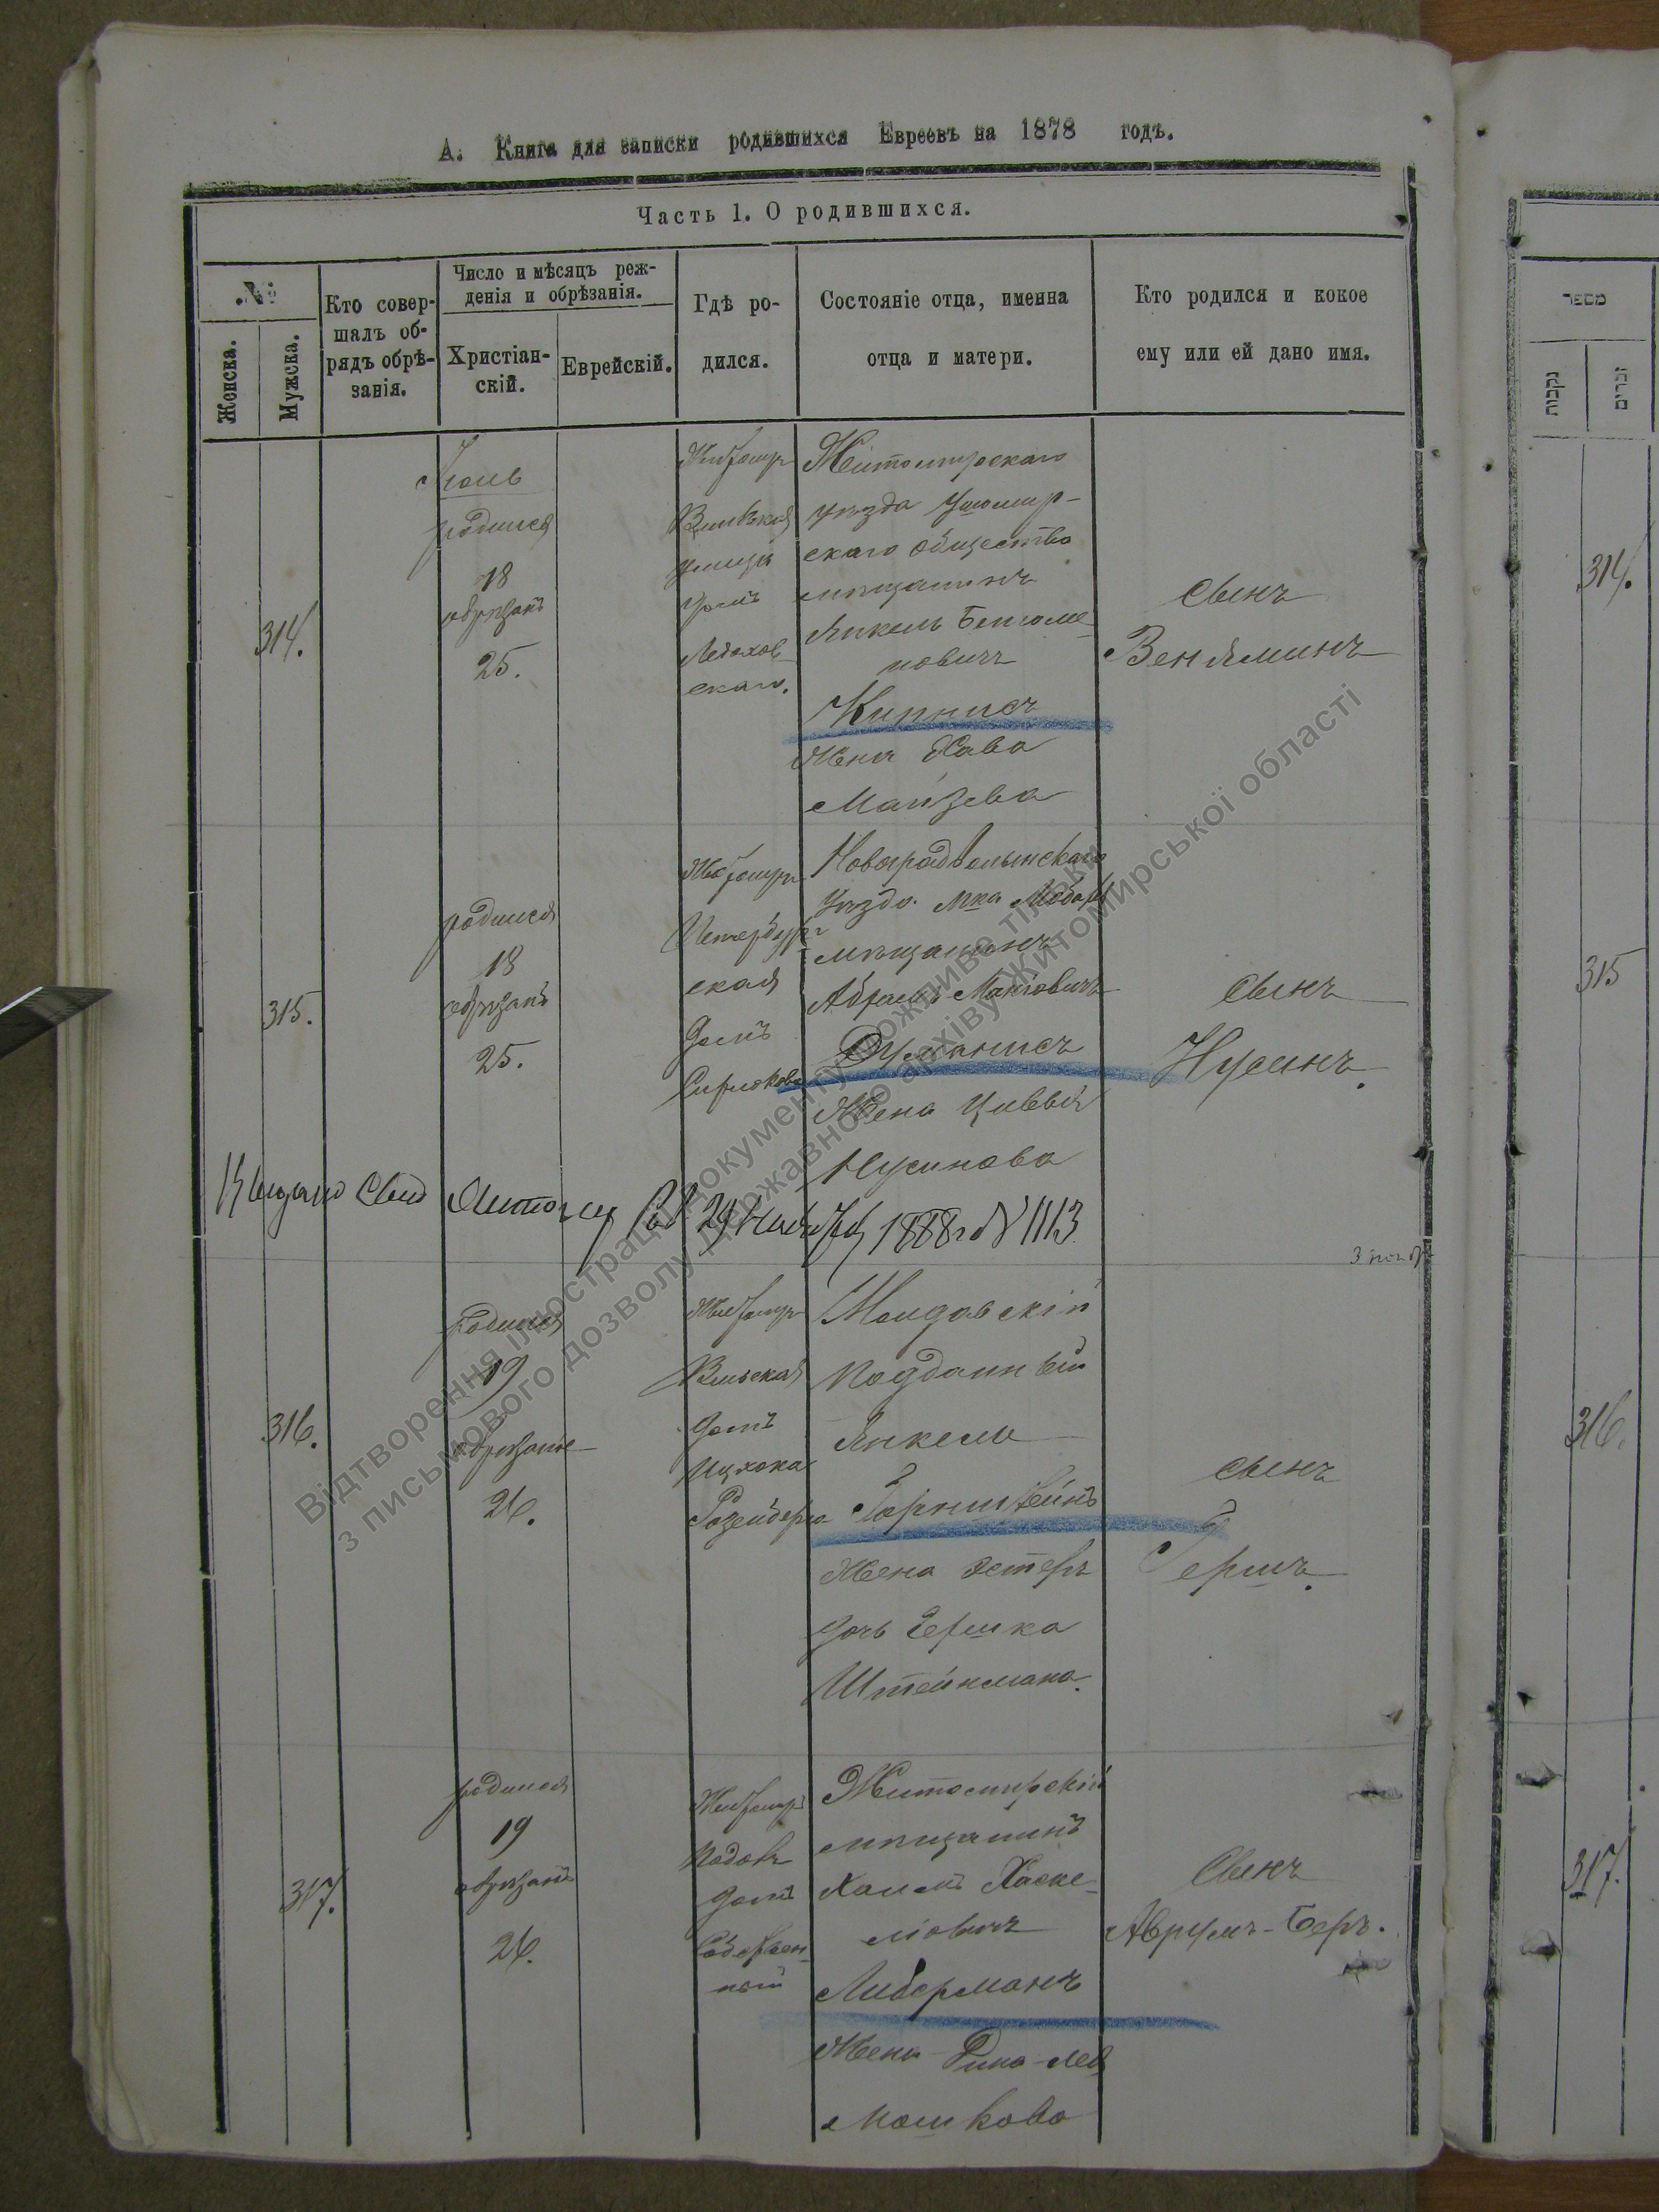 А. Книга для записки родившихся Евреевъ на 1878 годъ.
Часть 1. О родившихся.
№
Женска.
Мужска.
Кто совер-
шалъ об-
рядъ обрѣ-
занія.
Число и мѣсяцъ реж-
денія и обрѣзанія.
Христіан-
скій.
Еврейскій.
Гдѣ ро-
дился.
Состояніе отца, именна
отца и матери.
Кто родился и кокое
ему или ей дано имя.
מספר
נקבות
זכרים
314.
родился
18
обрѣзанъ
25.
Житомир
улица
домъ
скаго.
Житомирскаго
уѣзда Ушомир-
скаго общества
мѣщанинъ
Янкель Бенюме-
новичъ
Кипнисъ
Жена Хава
Мойзева
сынъ
Веніяминъ
314.
315.
родился
18
обрѣзанъ
25.
Житомир
Петербург
ская
домъ
Новоградволынскаго
уѣзда мка
мѣщанинъ
Абрамъ
Думанисъ
Жена Цивья
Нусинова
сынъ
Нусинъ.
315
Выдано Свид 1888 г № 1113
316.
родился
19
обрѣзанъ
26.
Житомир
Вильская
домъ
Ицхока
Розенберга
Молдавскій
подданный
Янкель
Горнштейнъ
Жена Эстеръ
дочь Гершка
Штейнмана.
сынъ
Гершъ.
316.
317.
родился
19
обрѣзанъ
26.
Житомир
домъ
Собствен-
ный
Житомирскій
мѣщанинъ
Хаимъ Хаске-
лювичъ
Либерманъ
Жена
Мошкова
Сынъ
Аврумъ-Беръ.
317.
Відтворення ілюстрації документу можливе тільки
з письмового дозволу Державного архіву Житомирської області